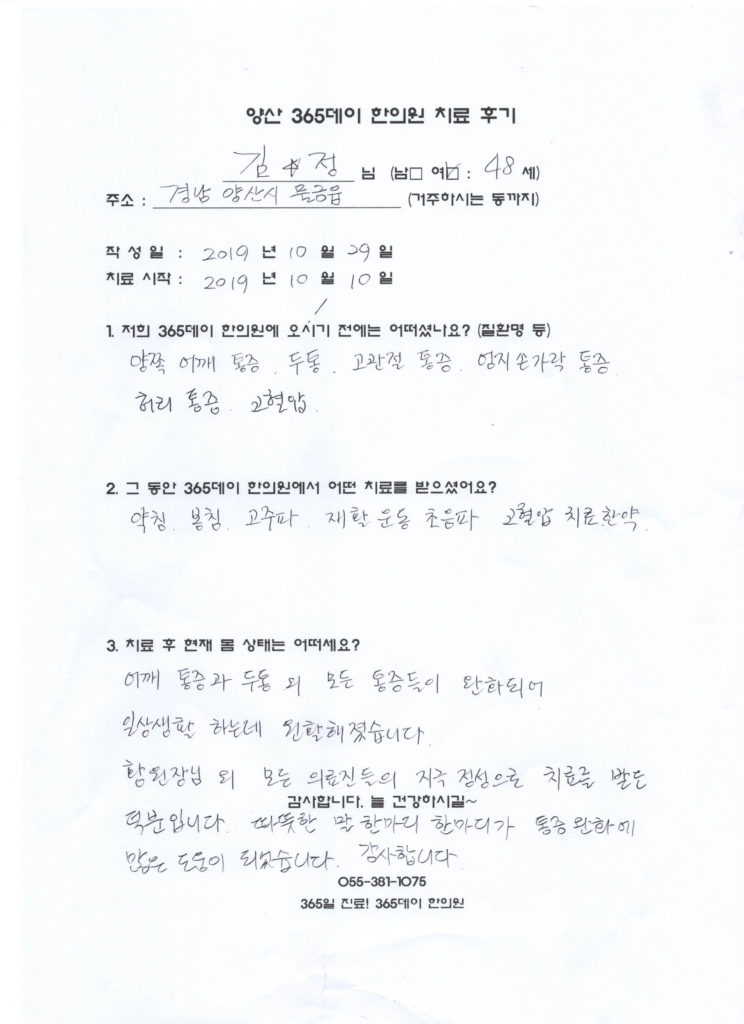 양산 365데이 한의원 치료 후기
김 ☆ 정 님 (남□ 여☑ : 48 세)
주소 : 경남 양산시 물금읍 (거주하시는 동까지)
작 성 일 : 2019 년 10 월 29 일
치료 시작 : 2019 년 10 월 10 일
1. 저희 365데이 한의원에 오시기 전에는 어떠셨나요? (질환명 등)
양쪽 어깨 통증. 두통. 고관절 통증. 엄지손가락 통증.
허리 통증. 고혈압.
2. 그 동안 365데이 한의원에서 어떤 치료를 받으셨어요?
약침. 봉침. 고주파. 재활운동 초음파 고혈압 치료한약.
3. 치료 후 현재 몸 상태는 어떠세요?
어깨 통증과 두통 외 모든 통증들이 완화되어
일상생활 하는데 원활해졌습니다.
함원장님 외 모든 의료진들의 지극 정성으로 치료를 받은
감사합니다. 늘 건강하시길~
덕분입니다. 따뜻한 말 한마리 한마디가 통증완화에
많은 도움이 되었습니다. 감사합니다.
055-381-1075
365일 진료! 365데이 한의원